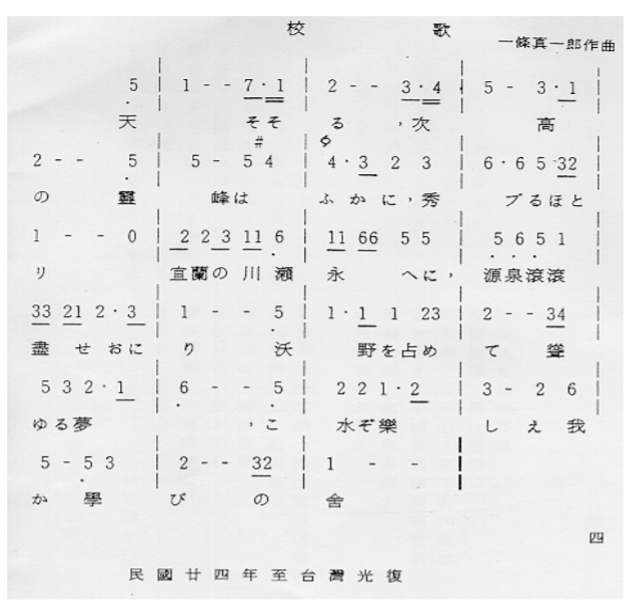 校 歌
一條真一郎作曲
5 | 1 - - 7·1 | 2 - - 3·4 | 5 - 3·1 |
天 そそ る ,次 高
2 - - 5 | 5 - 5 #4 | 4·3 2 3 | 6·6 5 32 |
の 靈 峰は ふかに,秀 ブるほと
1 - - 0 | 2 2 3 11 6 | 11 66 5 5 | 5 6 5 1 |
リ 宜蘭の川瀬 永 へに, 源泉滾滾
33 21 2·3 | 1 - - 5 | 1·1 1 23 | 2 - - 34 |
盡 せおに り 沃 野を占め て 聳
5 3 2·1 | 6 - - 5 | 2 2 1·2 | 3 - 2 6 |
ゆる夢 ,こ 水ぞ樂 しえ我
5 - 5 3 | 2 - - 32 | 1 - - |
か 學 び の 舍
四
民國廿四年至台灣光復